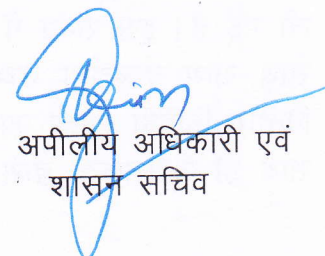 अपीलीय अधिकारी एवं
शासन सचिव